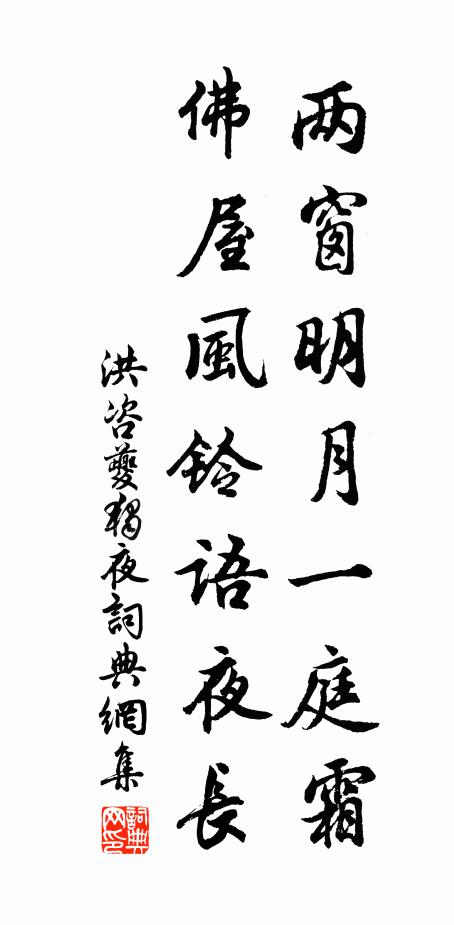 两窗明月一庭霜
佛屋風鈴語夜長
洪咨夔獨夜詞典網集
詞典
网印